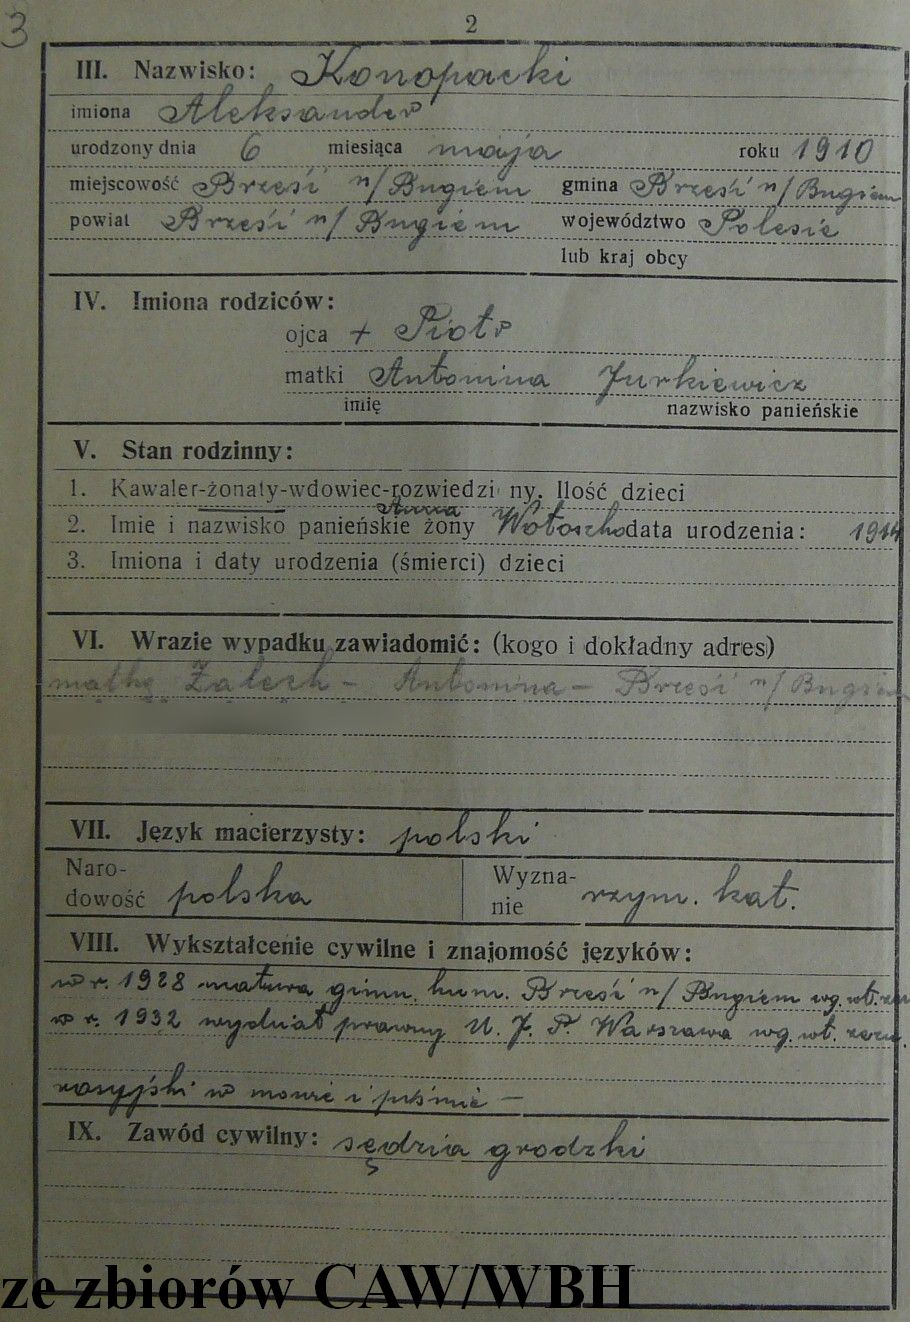 3
2
III. Nazwisko: Konopacki
imiona Aleksander
urodzony dnia 6 miesiąca maja roku 1910
miejscowość Brześć n/Bugiem gmina Brześć n/Bugiem
powiat Brześć n/Bugiem województwo Polesie
lub kraj obcy
IV. Imiona rodziców:
ojca + Piotr
matki Antonina Jurkiewicz
imię nazwisko panieńskie
V. Stan rodzinny:
1. Kawaler-żonaty-wdowiec-rozwiedziony. Ilość dzieci
Anna
2. Imię i nazwisko panieńskie żony data urodzenia: 1914
3. Imiona i daty urodzenia (śmierci) dzieci
VI. Wrazie wypadku zawiadomić: (kogo i dokładny adres)
matkę Antonina - Brześć n/Bugiem
VII. Język macierzysty: polski
Naro-
dowość polska
Wyzna-
nie rzym. kat.
VIII. Wykształcenie cywilne i znajomość języków:
w r. 1928 matura gimn. hum. Brześć n/Bugiem wg. wł.
w r. 1932 wydział prawny U. J. P. Warszawa wg. wł. zezn.
rosyjski w mowie i piśmie -
IX. Zawód cywilny: sędzia grodzki
ze zbiorów CAW/WBH